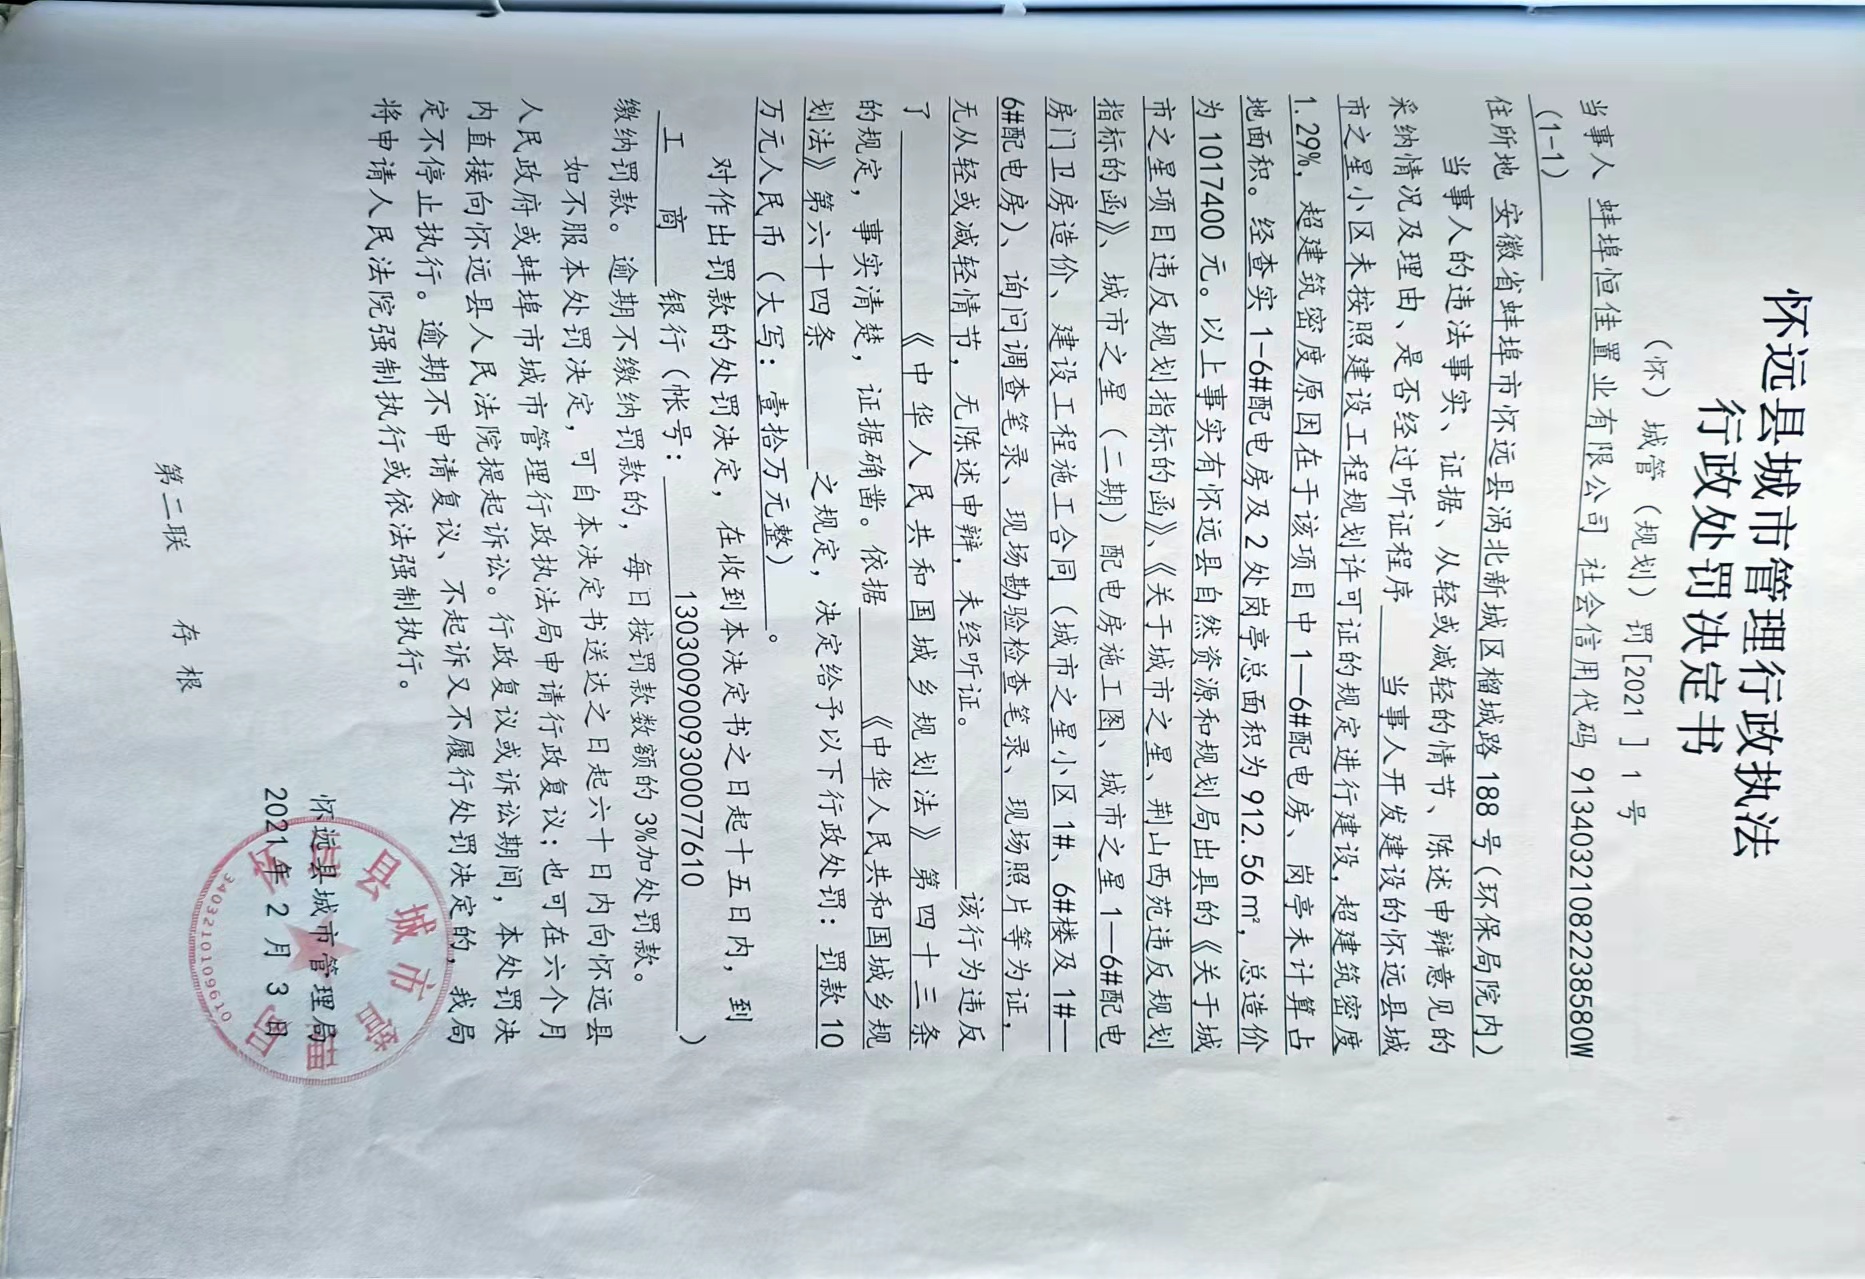 怀远县城市管理行政执法
行政处罚决定书
（怀）城管（规划）罚[2021]1号
当事人 蚌埠恒佳置业有限公司 社会信用代码 91340321082238580W
（1-1）
住所地 安徽省蚌埠市怀远县涡北新城区榴城路188号（环保局院内）
当事人的违法事实、证据、从轻或减轻的情节、陈述申辩意见的
采纳情况及理由、是否经过听证程序 当事人开发建设的怀远县城
市之星小区未按照建设工程规划许可证的规定进行建设，超建筑密度
1.29%，超建筑密度原因在于该项目中1—6#配电房、岗亭未计算占
地面积。经查实1-6#配电房及2处岗亭总面积为912.56㎡，总造价
为1017400元。以上事实有怀远县自然资源和规划局出具的《关于城
市之星项目违反规划指标的函》、《关于城市之星、荆山西苑违反规划
指标的函》、城市之星（二期）配电房施工图、城市之星1—6#配电
房门卫房造价、建设工程施工合同（城市之星小区1#、6#楼及1#—
6#配电房）、询问调查笔录、现场勘验检查笔录、现场照片等为证，
无从轻或减轻情节，无陈述申辩，未经听证。 该行为违反
了 《中华人民共和国城乡规划法》第四十三条
的规定，事实清楚，证据确凿。依据 《中华人民共和国城乡规
划法》第六十四条 之规定，决定给予以下行政处罚：罚款10
万元人民币（大写：壹拾万元整）。
对作出罚款的处罚决定，在收到本决定书之日起十五日内，到
工商 银行（帐号： 1303009009300077610 ）
缴纳罚款。逾期不缴纳罚款的，每日按罚款数额的3%加处罚款。
如不服本处罚决定，可自本决定书送达之日起六十日内向怀远县
人民政府或蚌埠市城市管理行政执法局申请行政复议；也可在六个月
内直接向怀远县人民法院提起诉讼。行政复议或诉讼期间，本处罚决
定不停止执行。逾期不申请复议、不起诉又不履行处罚决定的，我局
将申请人民法院强制执行或依法强制执行。
怀远县城市管理局
2021年2月3日
县城市管理局
3403210109610
第二联 存根